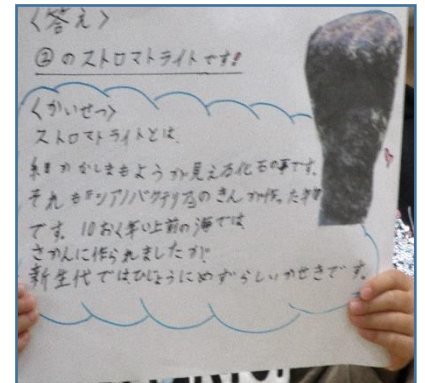 〈答え〉
②のストロマトライトです!
〈かいせつ〉
ストロマトライトとは、
細かなしまもようが見える化石の事です。
それも『シアノバクテリア』のきんが作った
です。10おく年い上前の海では
さかんに作られましたが
新生代ではひじょうにめずらしいかせきです。